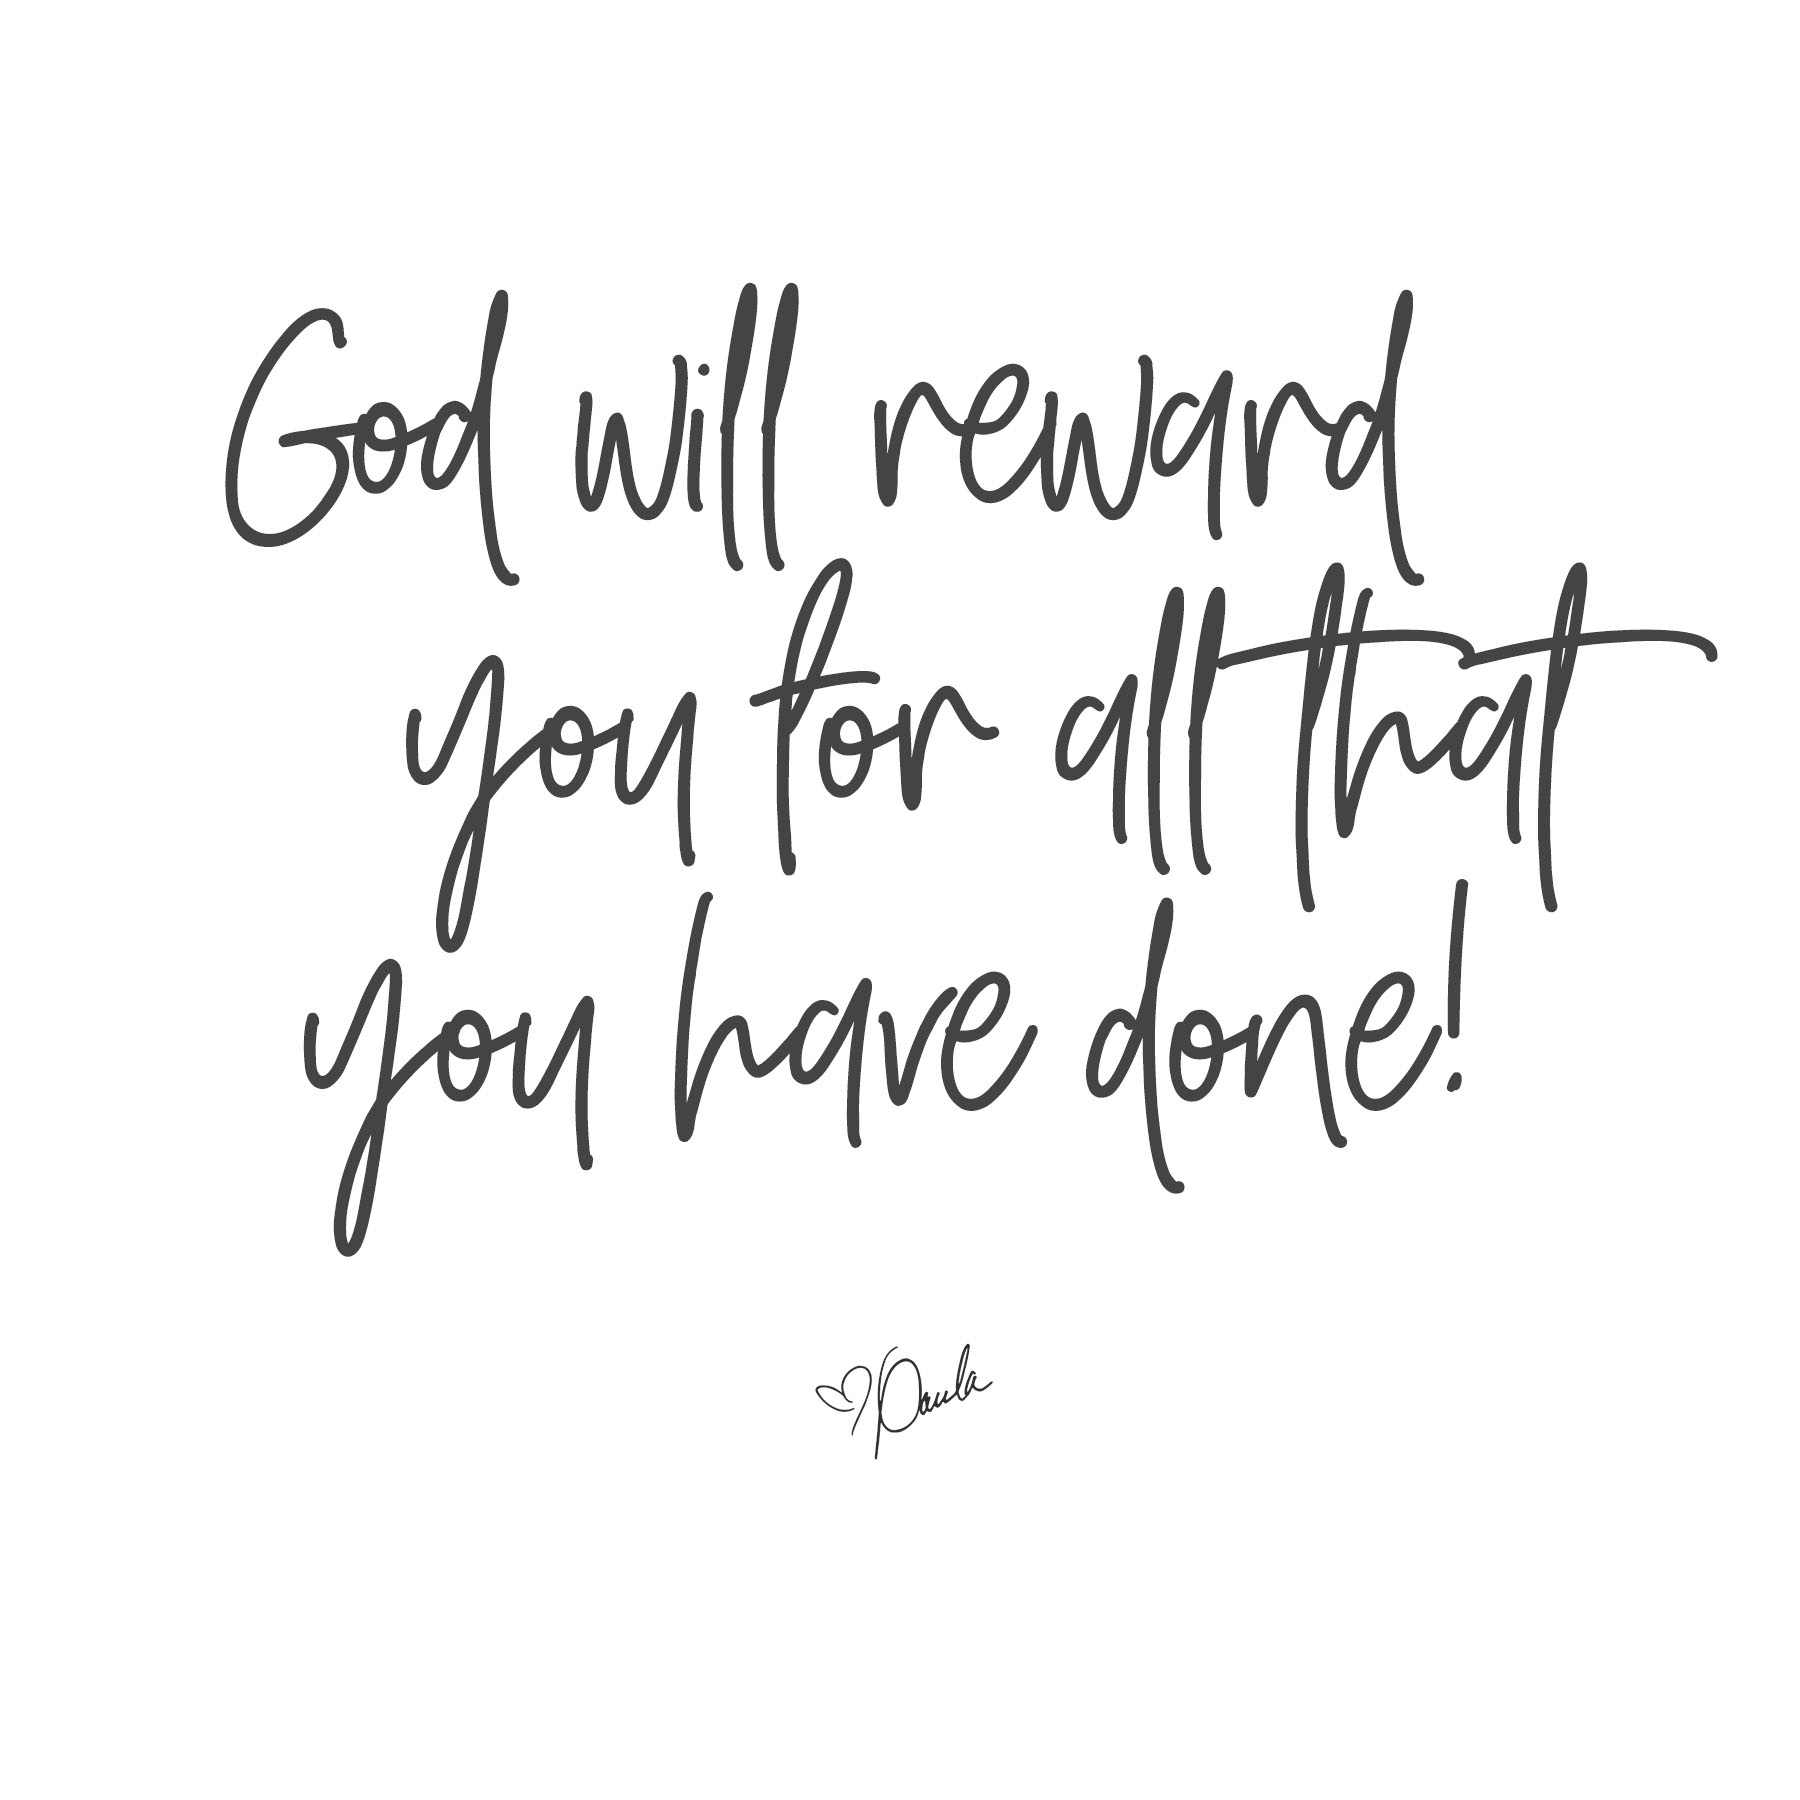 God will reward
you for all that
you have done!
Paula